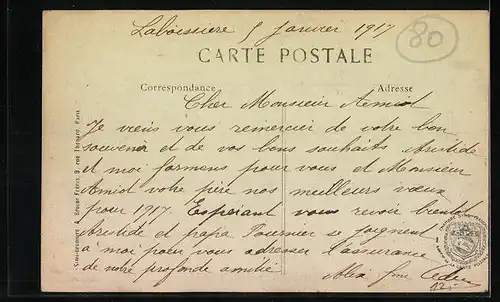 Laboissiere 5 Janvier 1917
80
CARTE POSTALE
Correspondance
Adresse
Cher Monsieur Amiot
Je viens vous remercier de votre bon
souvenir et de vos bons souhaits Aristide
et moi formons pour vous et Monsieur
Amiot votre père nos meilleurs vœux
pour 1917. Espérant vous revoir bientôt
Aristide et papa Fournier se joignent
a moi pour vous adresser l'assurance
de notre profonde amitié
12,-